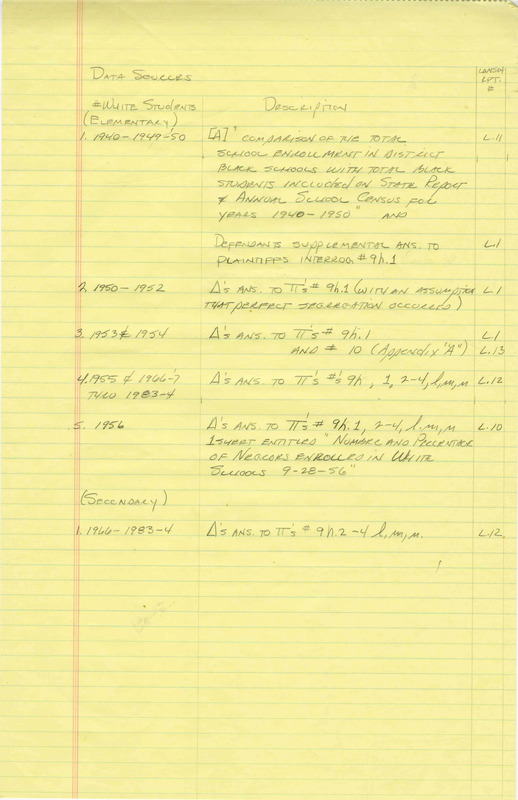 DATA SOURCES
LAWSON RPT. #
#WHITE STUDENTS DESCRIPTION
(ELEMENTARY)
1. 1940-1949-'50 [A] "COMPARISON OF THE TOTAL L.11
SCHOOL ENROLLMENT IN DISTRICT
BLACK SCHOOLS WITH TOTAL BLACK
STUDENTS INCLUDED ON STATE REPORT
& ANNUAL SCHOOL CENSUS FOR
YEARS 1940-1950" AND
DEFENDANTS SUPPLEMENTAL ANS. TO L.1
PLAINTIFFS INTERROG #9h.1
2. 1950-1952 Δ's ANS. TO π's # 9h.1 (WITH AN ASSUMPTION L.1
THAT PERFECT SEGREGATION OCCURRED)
3. 1953 & 1954 Δ's ANS. TO π's # 9h.1 L.1
AND # 10 (APPENDIX "A") L.13
4. 1955 & 1966-7 Δ's ANS. TO π's #'s 9h, 1, 2-4, l, m, n L.12
THRU 1983-4
5. 1956 Δ's ANS. TO π's # 9h.1, 2-4, l, m, n L.10
1 SHEET ENTITLED "NUMBER AND PERCENTAGE
OF NEGROES ENROLLED IN WHITE
SCHOOLS 9-28-56"
(SECONDARY)
1. 1966-1983-4 Δ's ANS. TO π's # 9h.2-4 l, m, n. L.12